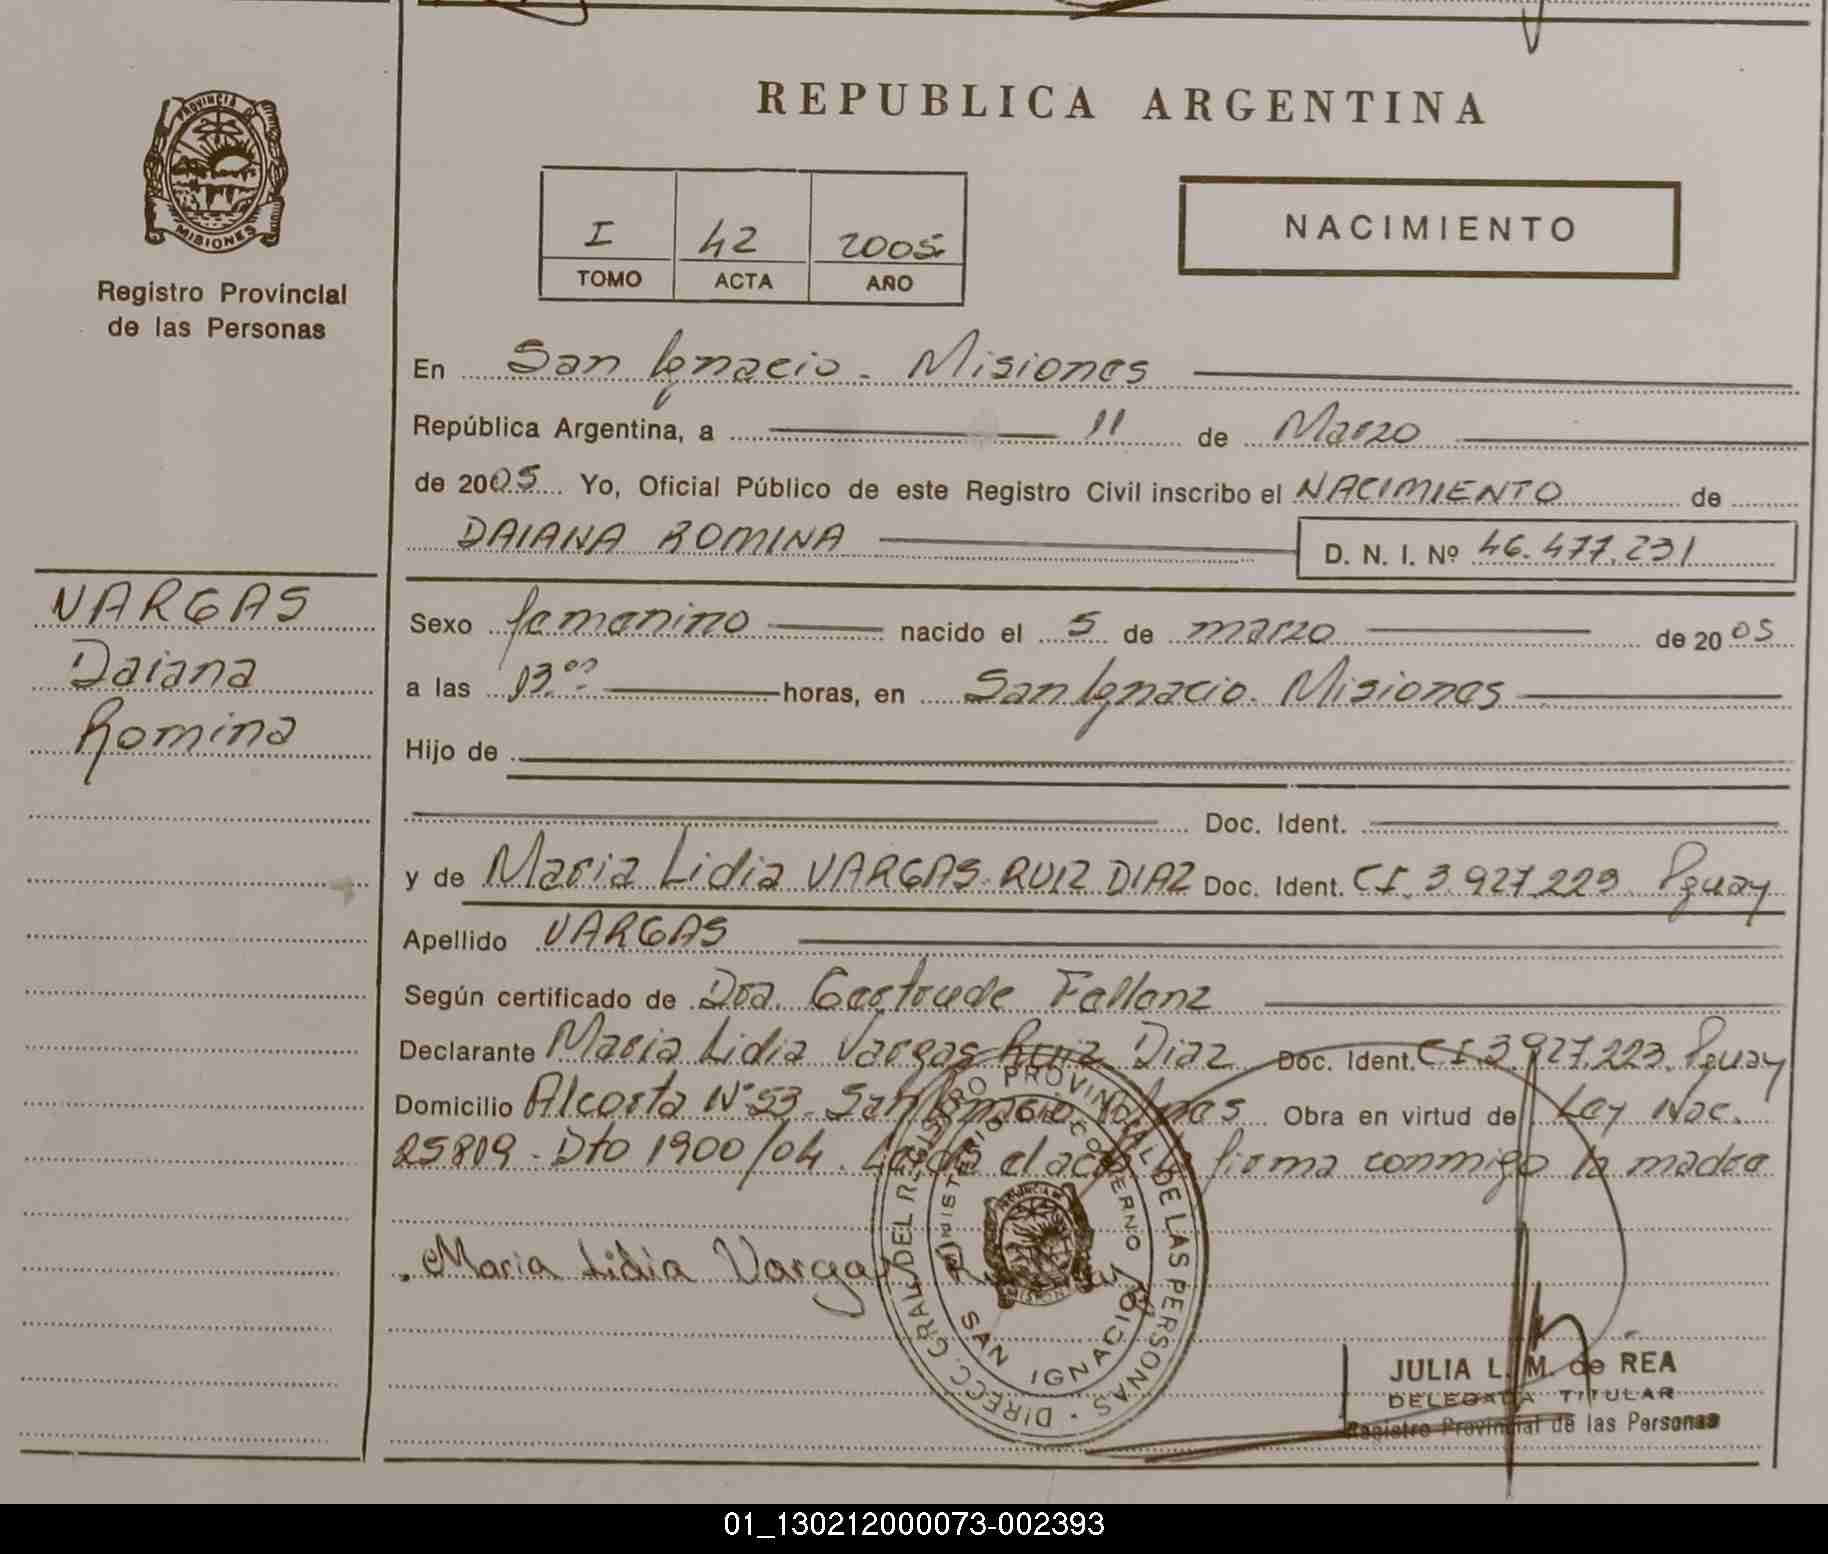 PROVINCIA DE
MISIONES
Registro Provincial
de las Personas
VARGAS
Daiana
Romina
REPUBLICA ARGENTINA
I 42 2005
TOMO ACTA AÑO
NACIMIENTO
En San Ignacio. Misiones
República Argentina, a 11 de Marzo
de 2005 Yo, Oficial Público de este Registro Civil inscribo el NACIMIENTO de
DAIANA ROMINA D. N. I. Nº 46.477.231
Sexo femenino nacido el 5 de marzo de 2005
a las 13.00 horas, en San Ignacio. Misiones
Hijo de
Doc. Ident.
y de Maria Lidia VARGAS RUIZ DIAZ Doc. Ident. CI. 3.927.223. Pguay
Apellido VARGAS
Según certificado de Dra. Gertrude Fallanz
Declarante Maria Lidia Vargas Ruiz Diaz Doc. Ident. CI. 3.927.223. Pguay
Domicilio Alcorta Nº 53. San Ignacio Mnes Obra en virtud de Ley Nac.
25809 - Dto 1900/04. Leida el acta la firma conmigo la madre
Maria Lidia Vargas
DIRECC. GRAL. DEL REGISTRO PROVINCIAL DE LAS PERSONAS
MINISTERIO DE GOBIERNO
SAN IGNACIO
JULIA L. M. de REA
DELEGADA TITULAR
Registro Provincial de las Personas
01_130212000073-002393